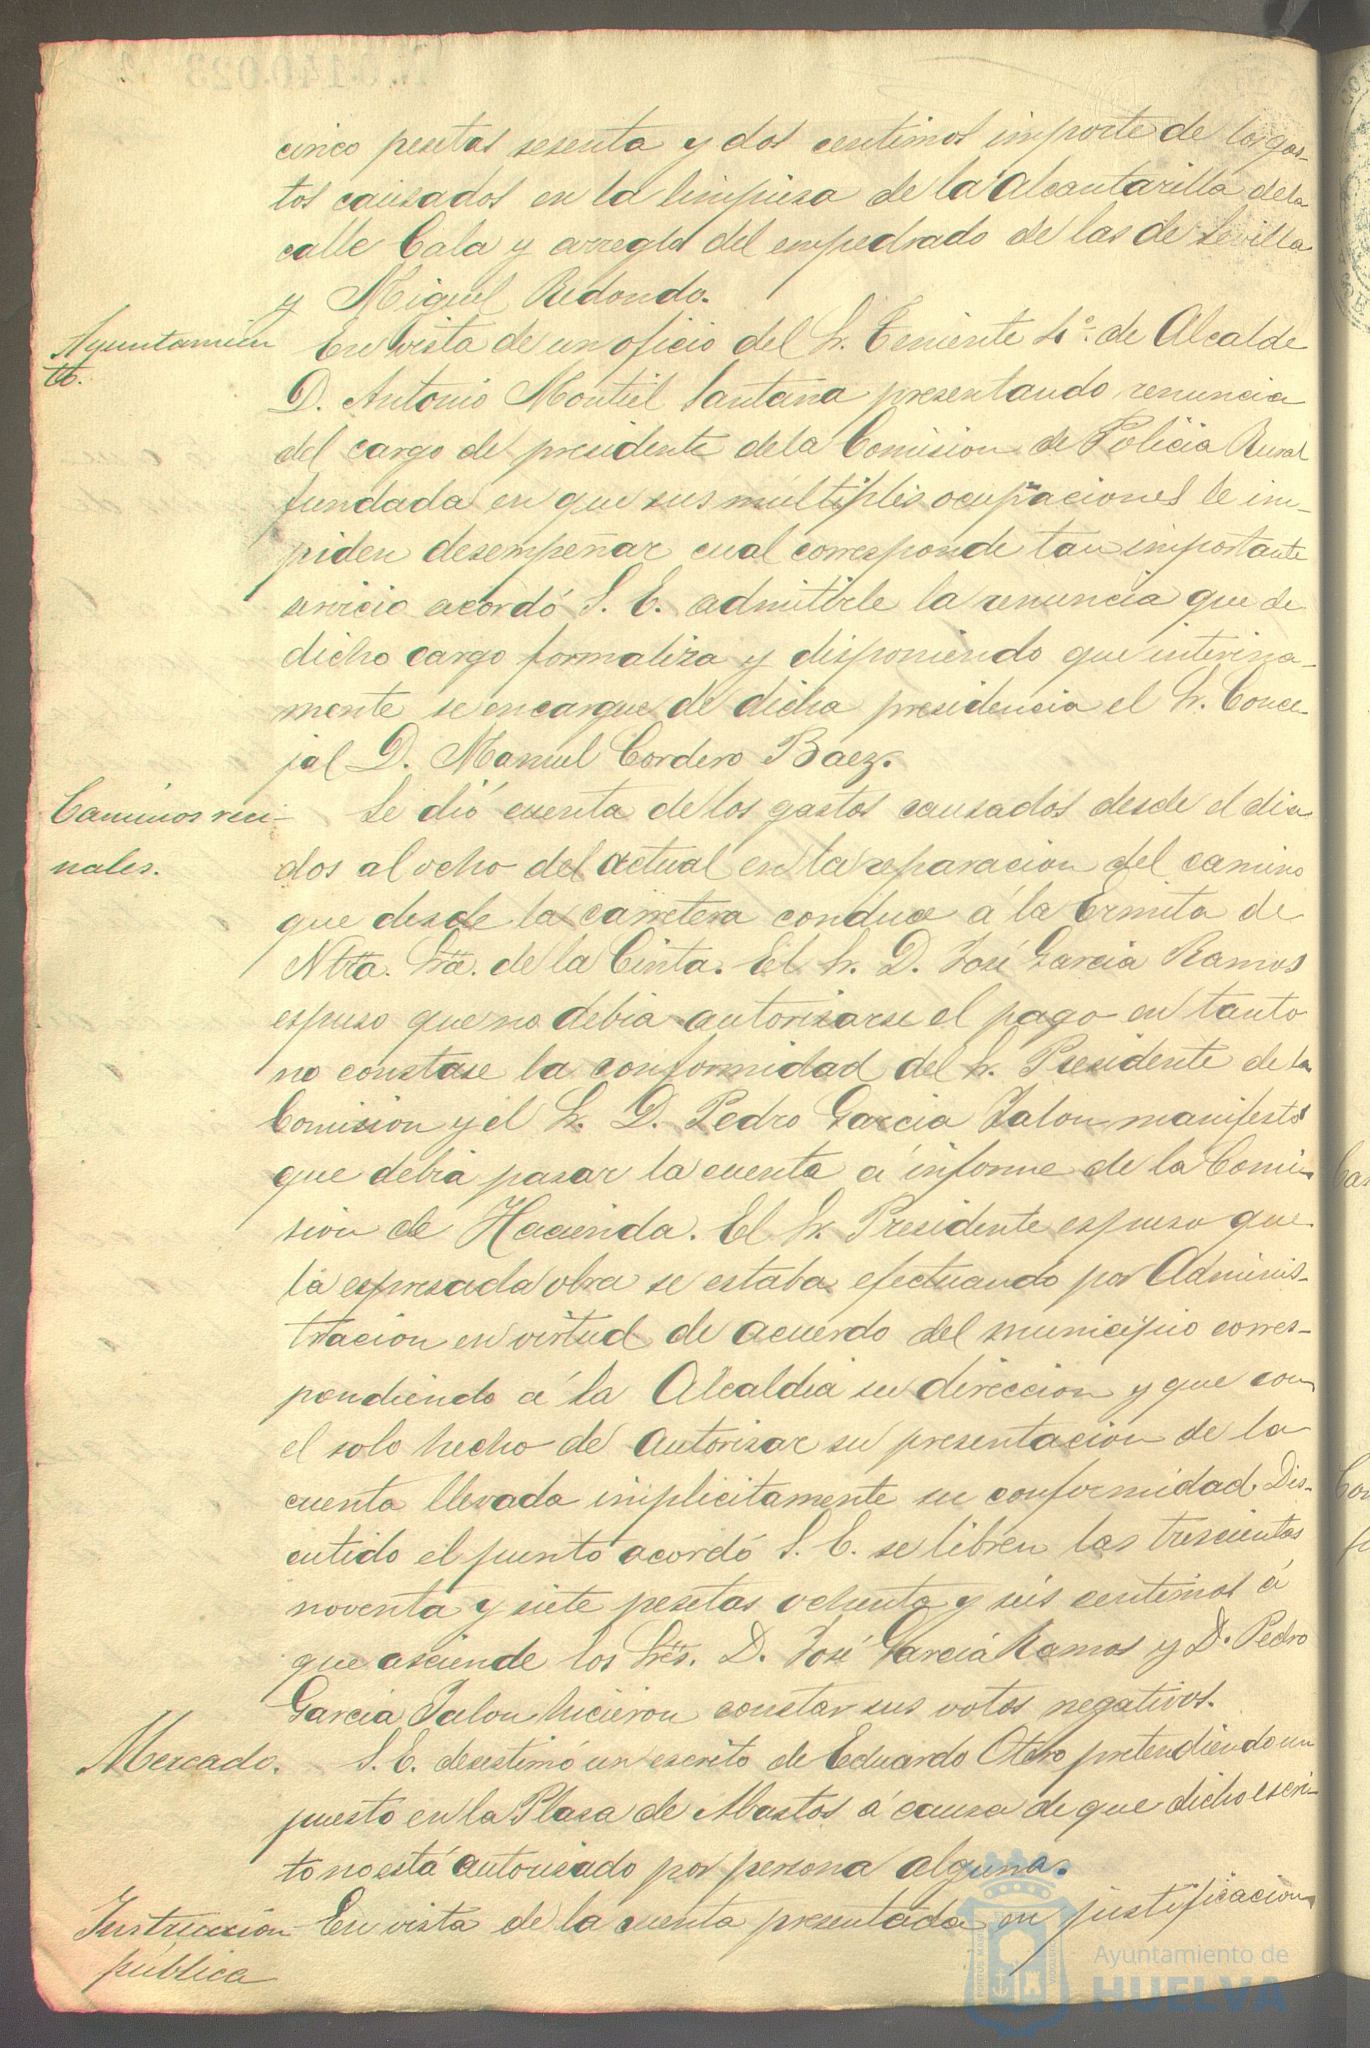 cinco pesetas sesenta y dos centimos importe de los gas-
tos causados en la limpieza de la Alcantarilla de la
calle Cala y arreglos del empedrado de las de Sevilla
y Miguel Redondo.
Ayuntamien
to.
En vista de un oficio del Sr. Teniente 4º. de Alcalde
D. Antonio Montiel Santana presentando renuncia
del cargo de presidente de la Comision de Policia Rural
fundada en que sus múltiples ocupaciones le im-
piden desempeñar cual corresponde tan importante
servicio acordó S. E. admitirle la renuncia que de
dicho cargo formaliza y disponiendo que interina-
mente se encargue de dicha presidencia el Sr. Conce-
jal D. Manuel Cordero Baez.
Caminos veci-
nales.
Se dió cuenta de los gastos causados desde el dia
dos al ocho del actual en la reparacion del camino
que desde la carretera conduce á la Ermita de
Ntra. Sra. de la Cinta. El Sr. D. José Garcia Ramos
espuso que no debia autorizarse el pago en tanto
no constase la conformidad del Sr. Presidente de la
Comision y el Sr. D. Pedro Garcia Jalon manifestó
que debia pasar la cuenta á informe de la Comi-
sion de Hacienda. El Sr. Presidente espuso que
la espresada obra se estaba efectuando por Adminis-
tracion en virtud de acuerdo del municipio corres-
pondiendo á la Alcaldia su direccion y que con
el solo hecho de autorizar su presentacion de la
cuenta llevada implicitamente su conformidad. Dis-
cutido el punto acordó S. E. se libren las trescientas
noventa y siete pesetas ochenta y seis centimos á
que asciende los Sres. D. José Garcia Ramos y D. Pedro
Garcia Jalon hicieron constar sus votos negativos.
Mercado.
S. E. desestimó un escrito de Eduardo Otero pretendiendo un
puesto en la Plaza de Abastos á causa de que dicho escri-
to no está autorizado por persona alguna.
Instruccion
pública
En vista de la cuenta presentada en justificacion
Ayuntamiento de
HUELVA